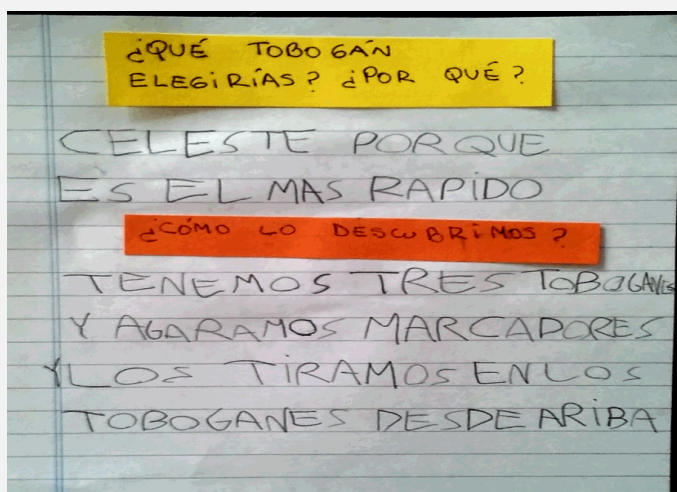 ¿QUÉ TOBOGÁN
ELEGIRÍAS? ¿POR QUÉ?
CELESTE PORQUE
ES EL MAS RAPIDO
¿CÓMO LO DESCUBRIMOS?
TENEMOS TRES TOBOGANES
Y AGARAMOS MARCADORES
Y LOS TIRAMOS EN LOS
TOBOGANES DESDE ARIBA